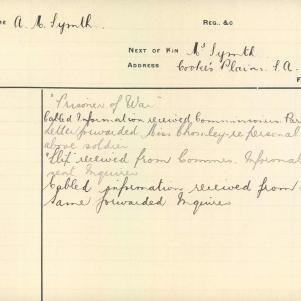 A. M. Symth.
REG., &C
NEXT OF KIN Mr Symth
ADDRESS Cooke's Plains. S.A.
"Prisoner of War"
Cabled Information received Commissioner
Letter forwarded Miss Chomley re personal
above soldier
"Slip" received from Commn.
sent Inquirer
Cabled information received from
Same forwarded Inquirer